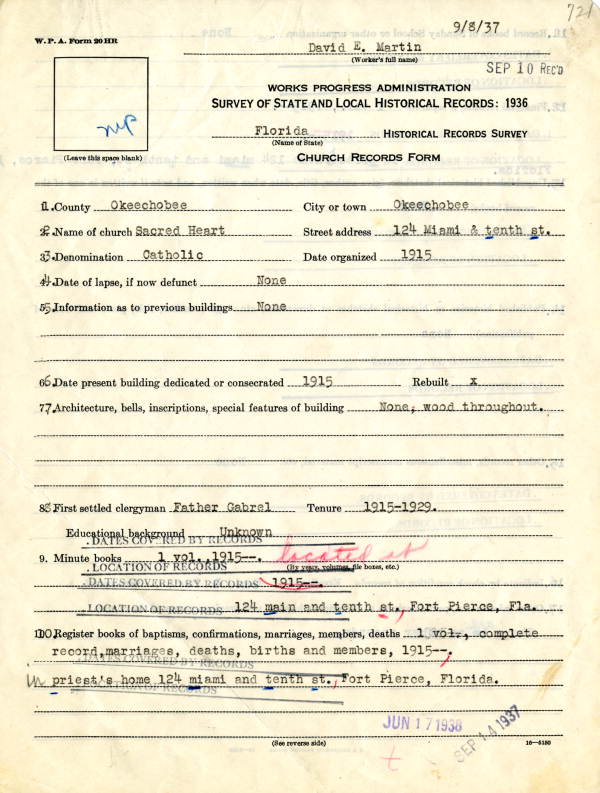 721
9/8/37
W. P. A. Form 20 HR
David E. Martin
(Worker's full name)
SEP 10 REC'D
WORKS PROGRESS ADMINISTRATION
SURVEY OF STATE AND LOCAL HISTORICAL RECORDS: 1936
Florida HISTORICAL RECORDS SURVEY
(Name of State)
(Leave this space blank)
CHURCH RECORDS FORM
1. County Okeechobee City or town Okeechobee
2. Name of church Sacred Heart Street address 124 Miami & tenth st.
3. Denomination Catholic Date organized 1915
4. Date of lapse, if now defunct None
5. Information as to previous buildings None
6. Date present building dedicated or consecrated 1915 Rebuilt x
7. Architecture, bells, inscriptions, special features of building None, wood throughout.
8. First settled clergyman Father Gabrel Tenure 1915-1929.
Educational background Unknown
. DATES COVERED BY RECORDS
9. Minute books 1 vol., 1915--. located at
. LOCATION OF RECORDS (By years, volumes, file boxes, etc.)
. DATES COVERED BY RECORDS 1915--.
. LOCATION OF RECORDS 124 main and tenth st., Fort Pierce, Fla.
10. Register books of baptisms, confirmations, marriages, members, deaths 1 vol., complete
record, marriages, deaths, births and members, 1915--,
. DATES COVERED BY RECORDS
in priest's home 124 miami and tenth st., Fort Pierce, Florida.
. LOCATION OF RECORDS
JUN 17 1938
SEP 14 1937
(See reverse side)
t